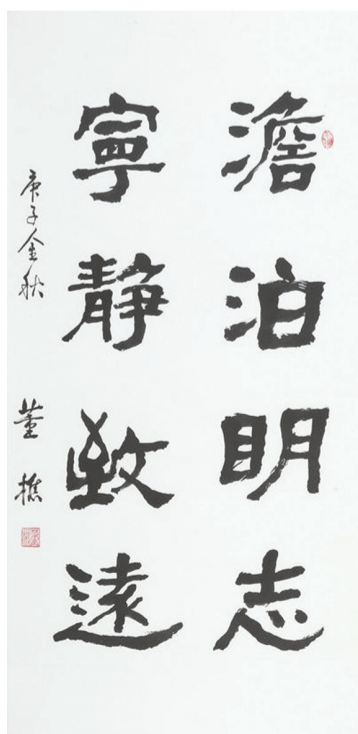 澹泊明志
寧靜致遠
庚子金秋
董樵